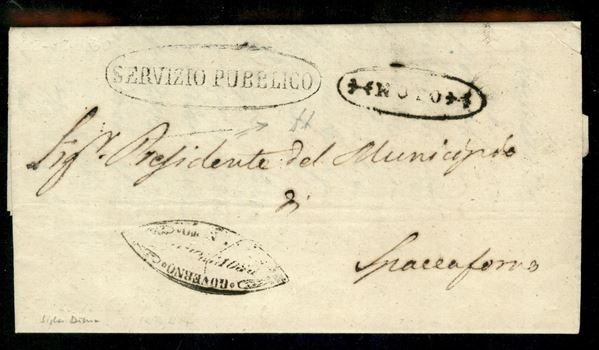 SERVIZIO PUBBLICO
NOTO
Sig.r Presidente del Municipio
di
Spaccaforno
GOVERNO